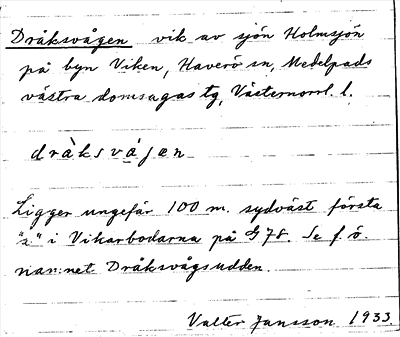 Dråksvågen vik av sjön Holmsjön
på byn Viken, Haverö sn, Medelpads
västra domsagas tg, Västernorrl. l.
dråksvåjen
Ligger ungefär 100 m. sydväst första
"a" i Vikarbodarna på G78. Se f. ö.
nam:net Dråksvågsudden.
Valter Jansson 1933.